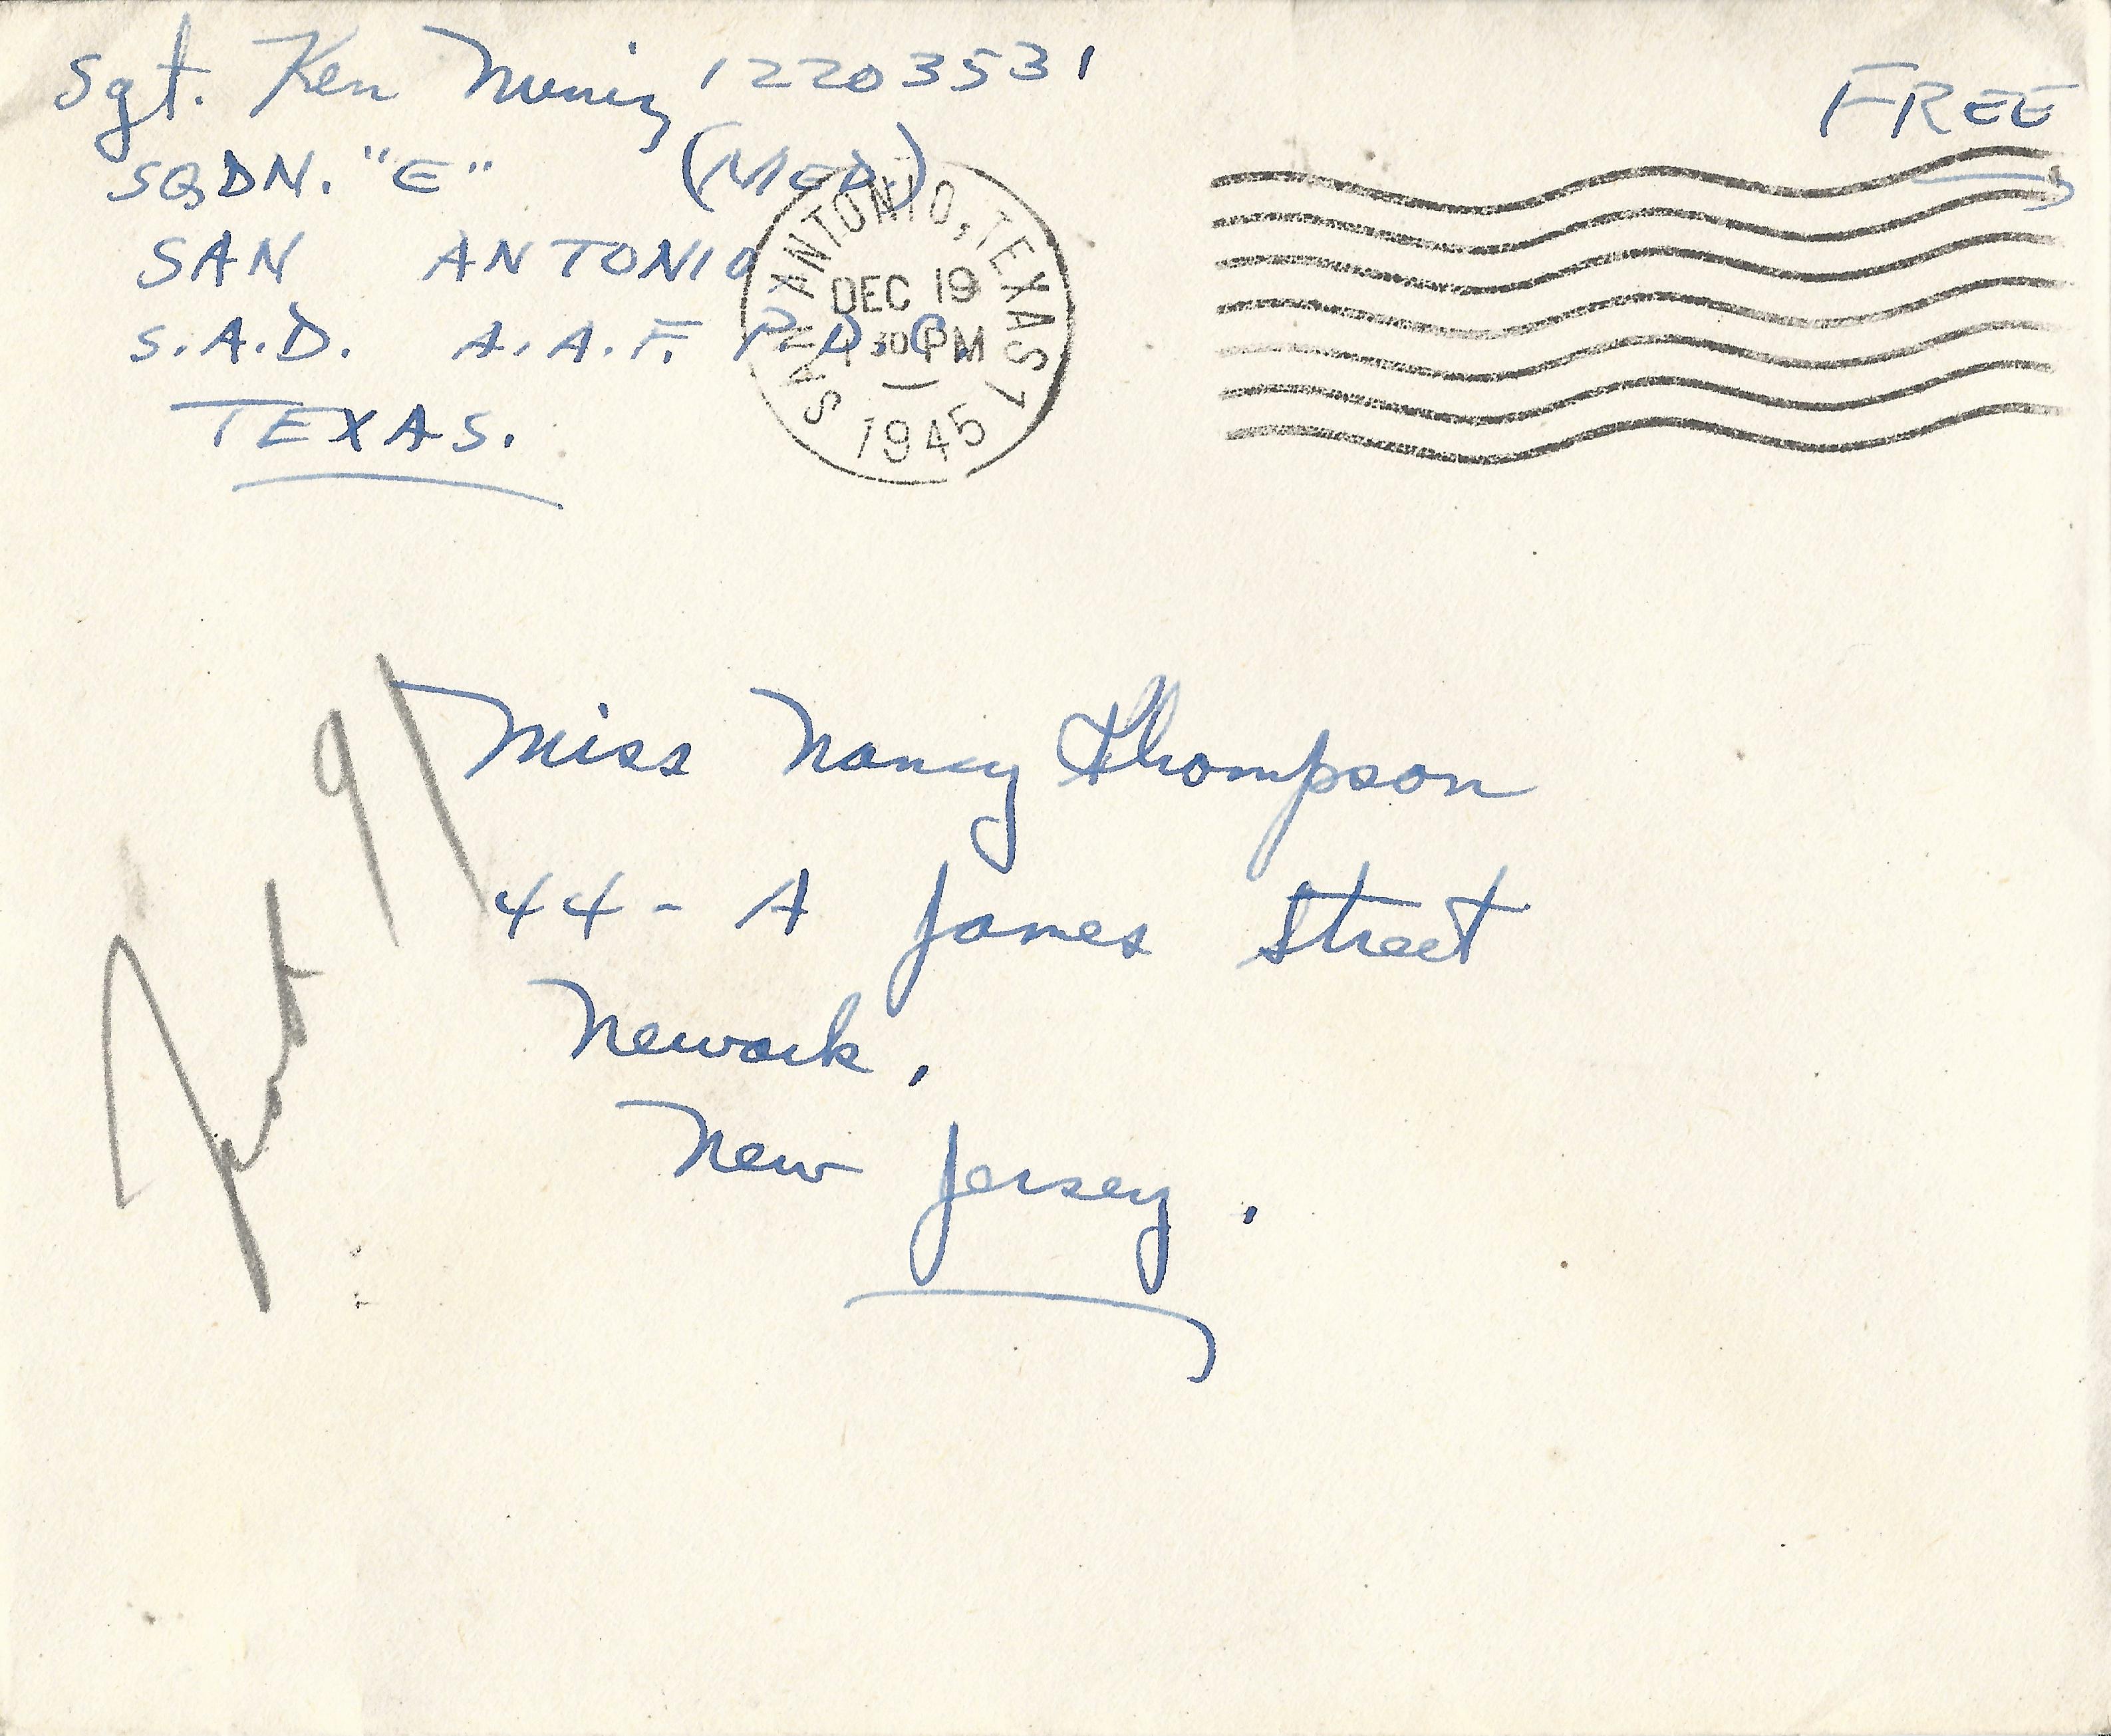 Sgt. Ken Muniz 12203531
SQDN. "E" (MED)
SAN ANTONIO
S.A.D. A.A.F. P.D.C.
TEXAS.
FREE
SAN ANTONIO, TEXAS 1
DEC 19
30 PM
1945
Miss Nancy Thompson
44-A James Street
Newark,
New Jersey.
91